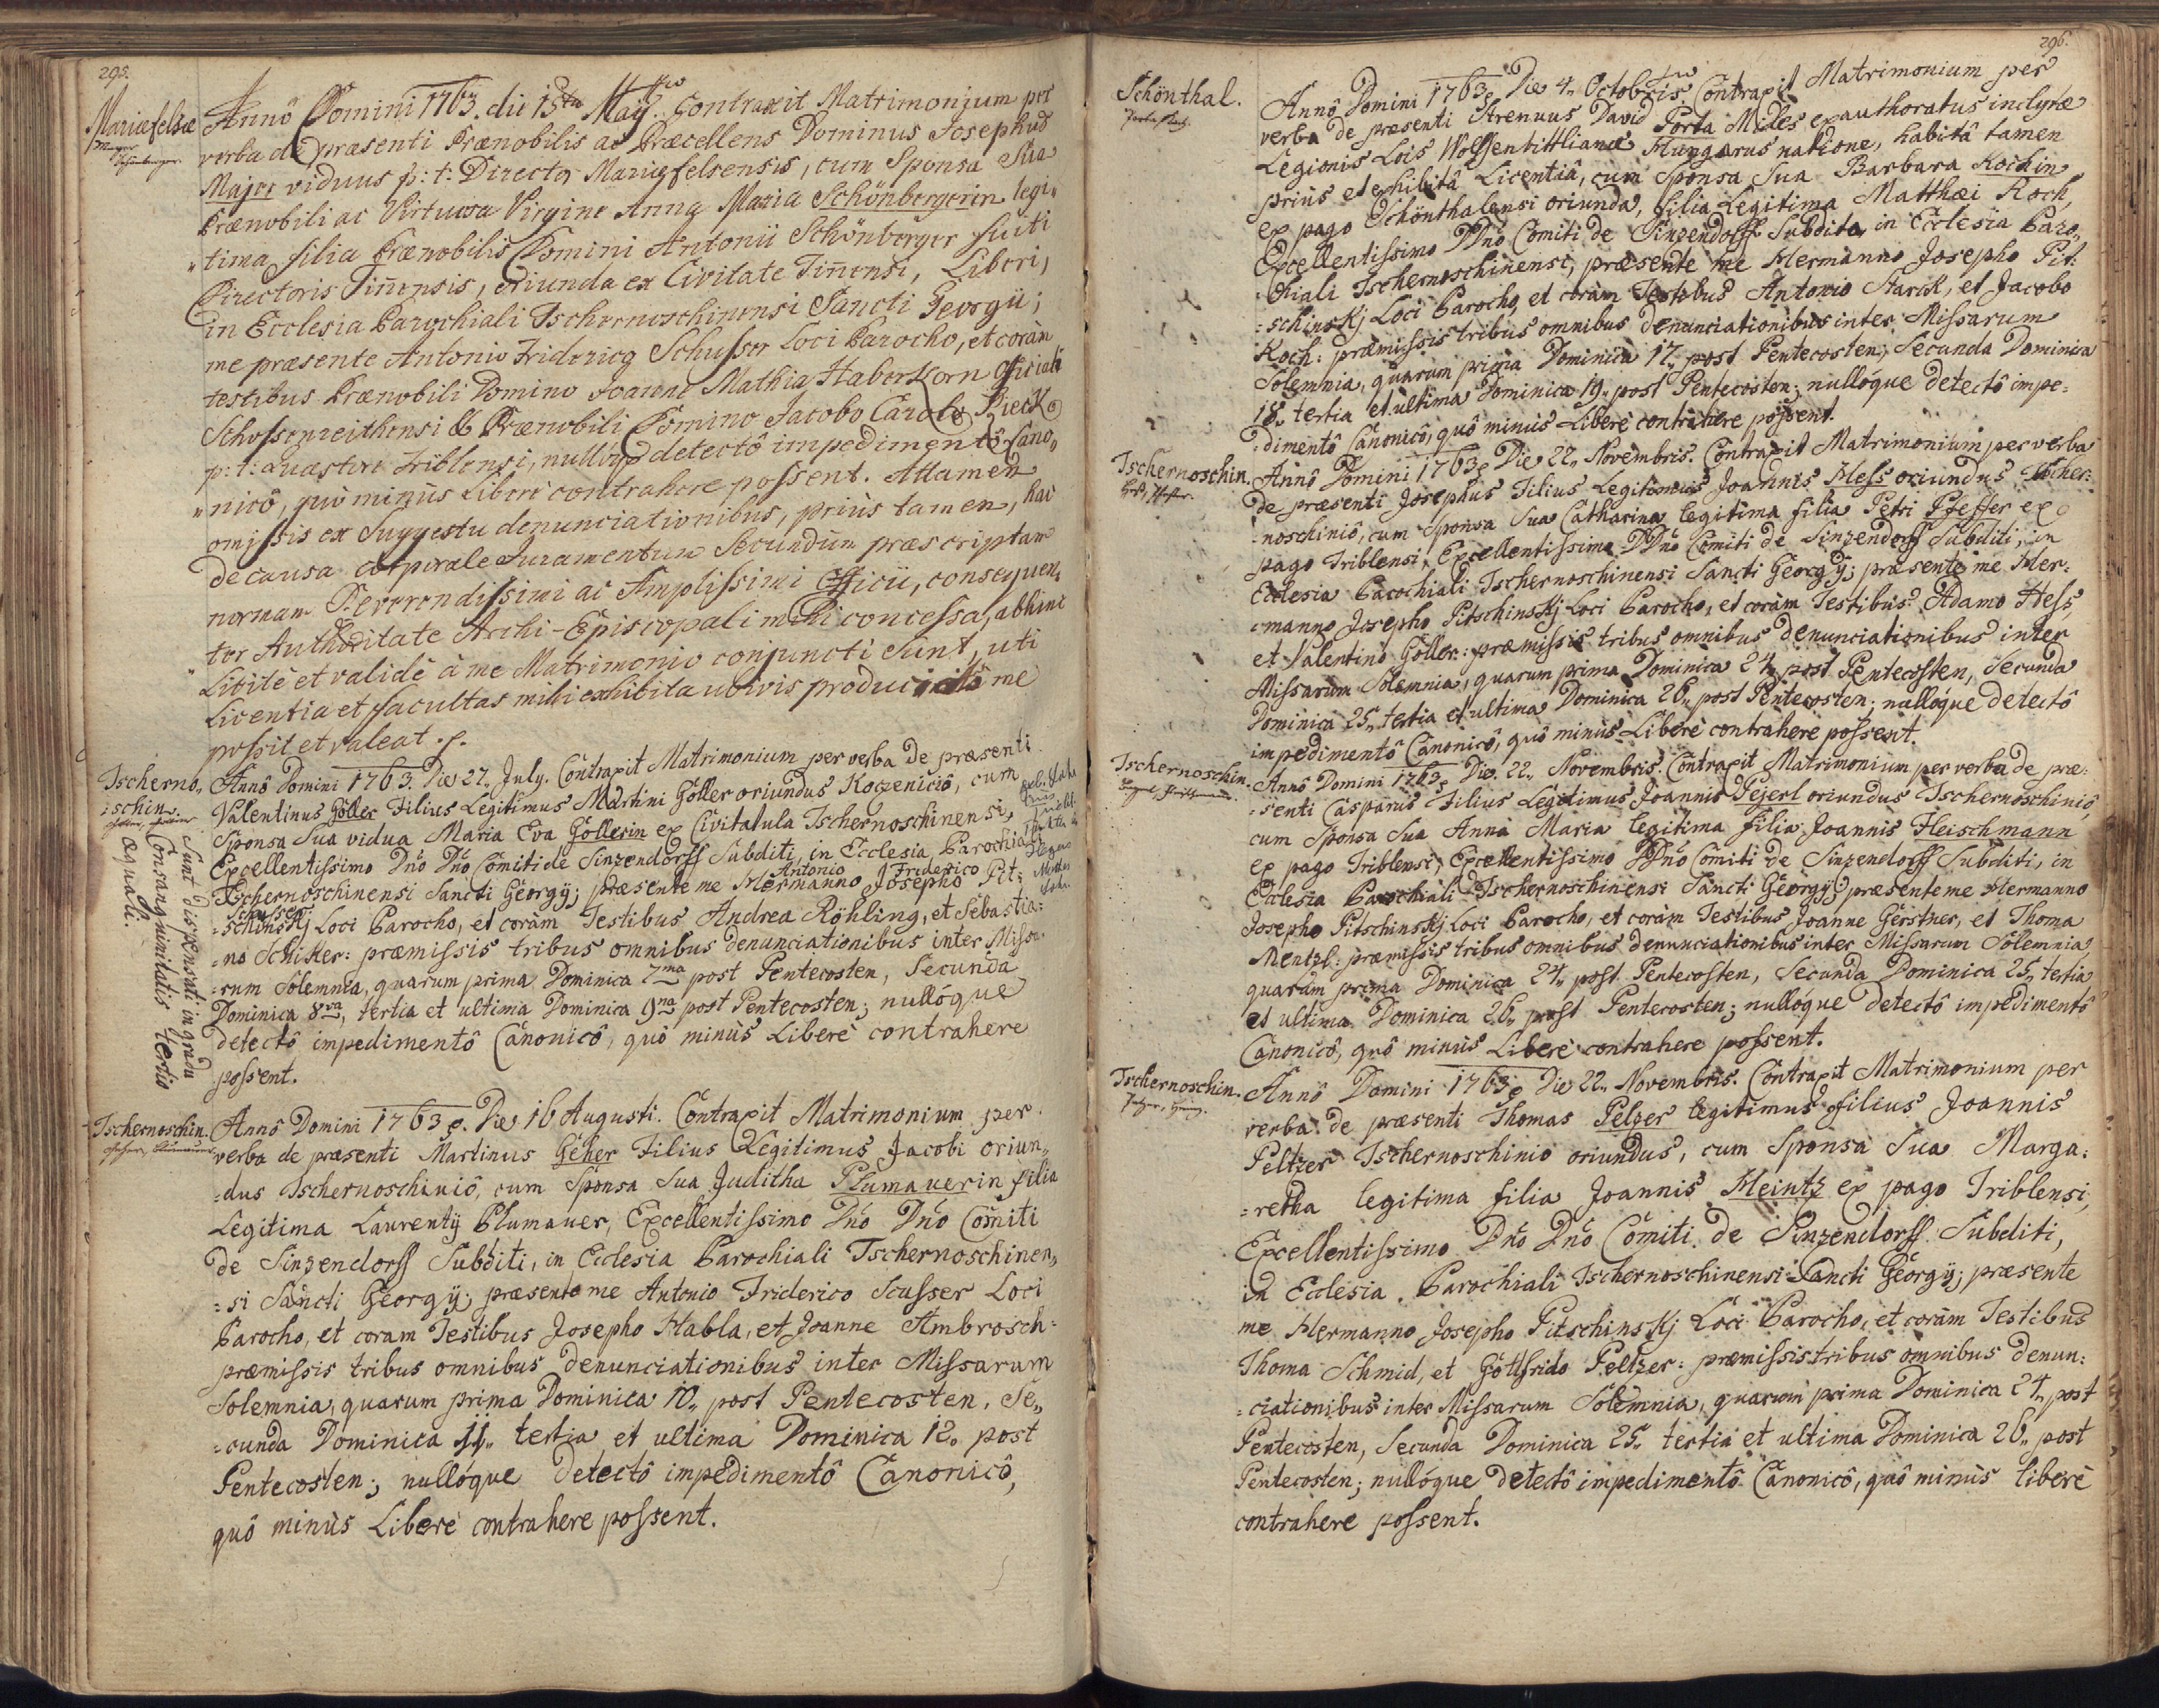 295.
Mariæfelsæ
Mayer
Schönberger.
Annô Domini 1763. die 15ta Maÿ. Contraxit Matrimonium per
verba de præsenti Prænobilis ac Præcellens Dominus Josephus
Majer viduus p: t: Director Mariæfelsensis, cum Sponsa Sua
Prænobili ac Virtuosa Virgine Anna Maria Schönbergerin legi„
„tima filia Prænobilis Domini Antonii Schönberger fuiti
Directoris Tinensis, oriunda ex Civitate Tinensi, Liberi,
in Ecclesia Parochiali Tschernoschinensi Sancti Georgii;
me præsente Antonio Friderico Schusser Loci Parocho, et coràm
testibus Prænobili Domino Joanne Mathia Haberkorn Officiali
Schossenreithensi & Prænobili Domino Jacobo Carolo Rieck
p: t: Quæstore Triblensi, nulloq detectô impedimentô Cano„
„nicô, quô minùs Liberè contrahere possent. Attamen
omissis ex Suggestu denunciationibus, priùs tamen, hac
de causa corporale Juramentum Secundùm præscriptam
normam Reverendissimi ac Amplissimi Officii, consequen„
„ter Authoritate Archi-Episcopali mihi concessa, abhinc
Licitè et validè à me Matrimonio conjuncti Sunt, uti
Licentia et facultas mihi exhibita utivis produci à me
possit et valeat.
Tscherno„
:schin
Annô Domini 1763. Die 27. July. Contraxit Matrimonium per verba de præsenti
Valentinus Göller Filius Legitimus Martini Göller oriundus Kozeniciô, cum
Sponsa Sua vidua Maria Eva Göllerin ex Civitatula Tschernoschinensi,
Excellentissimo Dnô Dnô Comiti de Sinzendorff Subditi, in Ecclesia Parochiali
Antonio Friderico
Tschernoschinensi Sancti Georgÿ; præsente me Hermanno Josepho Pit:
Schusser
=schinskj Loci Parocho, et coràm Testibus Andrea Röhling, et Sebastia:
=no Schiker: præmissis tribus omnibus denunciationibus inter Missa:
:rum Solemnia, quarum prima Dominica 7ma post Pentecosten, Secunda
Dominica 8va, tertia et ultima Dominica 9na post Pentecosten; nullóque
detectô impedimentô Canonicô, quô minùs Liberè contrahere
possent.
Sunt dispensati in gradu
Consanguinitatis tertio
æquali.
Tschernoschin.
Annô Domini 1763. Die 16 Augusti. Contraxit Matrimonium per
verba de præsenti Martinus Geher Filius Legitimus Jacobi oriun„
=dus Tschernoschiniô, cum Sponsa Sua Juditha Plumauerin filia
Legitima Laurentÿ Plumauer, Excellentissimo Dnô Dnô Comiti
de Sinzendorff Subditi, in Ecclesia Parochiali Tschernoschinen„
=si Sancti Georgÿ; præsente me Antonio Friderico Scusser Loci
Parocho, et coram Testibus Josepho Habla, et Joanne Ambrosch:
præmissis tribus omnibus denunciationibus inter Missarum
Solemnia, quarum prima Dominica 10„ post Pentecosten, Se„
=cunda Dominica 11„ tertia et ultima Dominica 12„ post
Pentecosten; nullóque detectô impedimentô Canonicô,
quô minùs Liberè contrahere possent.
296.
Schönthal.
Porta, Koch.
Annô Domini 1763. Die 4„ Octobris Contraxit Matrimonium per
verba de præsenti Strenuus David Porta Miles exauthoratus inclytæ
Legionis Lois Wolffenbittlianæ Hungarus natione, habitâ tamen
priùs et exhibitâ Licentiâ, cum Sponsa Sua Barbara Kochin
ex pago Schönthalensi oriunda, filia Legitima Matthæi Koch,
Excellentissimo DDnô Comiti de Sinzendorff Subdita, in Ecclesia Paro„
:chiali Tschernoschinensi, præsente me Hermanno Josepho Pit:
=schinskj Loci Parocho, et coràm Testibus Antonio Starck, et Jacobo
Koch: præmissis tribus omnibus denunciationibus inter Missarum
Solemnia, quarum prima Dominica 17„ post Pentecosten, Secunda Dominica
18„ tertia et ultima Dominica 19„ post Pentecosten; nullóque detectô impe=
=dimentô Canonicô, quô minùs Liberè contrahere possent.
Tschernoschin.
Hess, Pfeffer.
Annô Domini 1763. Die 22„ Novembris. Contraxit Matrimonium per verba
de præsenti Josephus Filius Legitimus Joannis Hess oriundus Tscher:
:noschiniô, cum Sponsa Sua Catharina legitima filia Petri Pfeffer ex
pago Triblensi, Excellentissimo DDnô Comiti de Sinzendorff Subditi, in
Ecclesia Parochiali Tschernoschinensi Sancti Georgÿ; præsente me Her:
=manno Josepho Pitschinskj Loci Parocho, et coràm Testibus Adamo Hess,
et Valentino Göller: præmissis tribus omnibus denunciationibus inter
Missarum Solemnia, quarum prima Dominica 24„ post Pentecosten, Secunda
Dominica 25„ tertia et ultima Dominica 26„ post Pentecosten; nullóque detectô
impedimentô Canonicô, quô minùs Liberè contrahere possent.
Tschernoschin.
Annô Domini 1763. Die 22„ Novembris. Contraxit Matrimonium per verba de præ:
=senti Casparus Filius Legitimus Joannis Pejerl oriundus Tschernoschiniô,
cum Sponsa Sua Anna Maria legitima filia Joannis Fleischmann
ex pago Triblensi, Excellentissimo DDnô Comiti de Sinzendorff Subditi, in
Ecclesia Parochiali Tschernoschinensi Sancti Georgÿ; præsente me Hermanno
Josepho Pitschinskj Loci Parocho, et coràm Testibus Joanne Gerstner, et Thoma
Mentzl: præmissis tribus omnibus denunciationibus inter Missarum Solemnia,
quarum prima Dominica 24„ post Pentecosten, Secunda Dominica 25„ tertia
et ultima Dominica 26„ post Pentecosten; nullóque detectô impedimentô
Canonicô, quô minùs Liberè contrahere possent.
Tschernoschin.
Annô Domini 1763. Die 22„ Novembris. Contraxit Matrimonium per
verba de præsenti Thomas Pelzer legitimus filius Joannis
Peltzer Tschernoschinio oriundus, cum Sponsa Sua Marga:
=retha legitima filia Joannis Heintz ex pago Triblensi,
Excellentissimo Dnô Dnô Comiti de Sinzendorff Subditi,
in Ecclesia Parochiali Tschernoschinensi Sancti Georgÿ; præsente
me Hermanno Josepho Pitschinskj Loci Parocho, et coràm Testibus
Thoma Schmid, et Gottfrido Peltzer: præmissis tribus omnibus denun:
=ciationibus inter Missarum Solemnia, quarum prima Dominica 24„ post
Pentecosten, Secunda Dominica 25„ tertia et ultima Dominica 26„ post
Pentecosten; nullóque detectô impedimentô Canonicô, quô minùs liberè
contrahere possent.